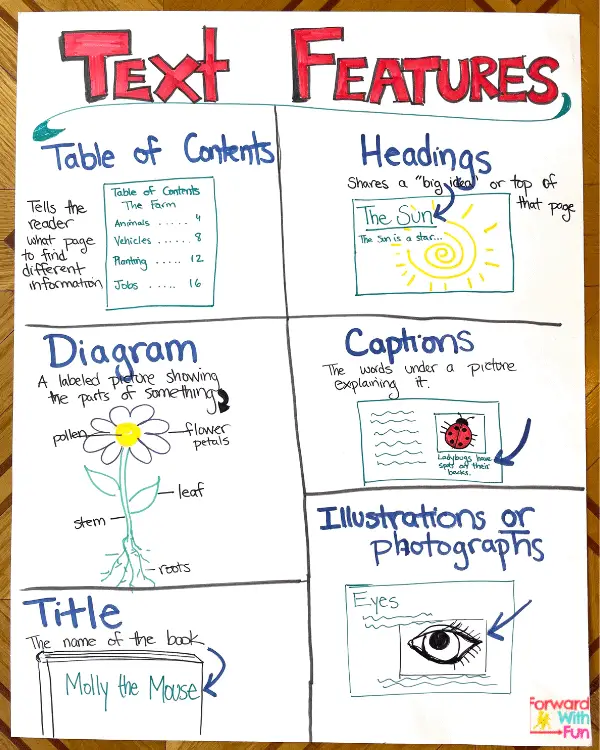 TEXT FEATURES
Table of Contents
Tells the
reader
what page
to find
different
information
Table of Contents
The Farm
Animals ..... 4
Vehicles ...... 8
Planting ..... 12
Jobs ..... 16
Headings
Shares a "big idea" or top of
that page
The Sun
The Sun is a star...
Diagram
A labeled picture showing
the parts of something
pollen
flower
petals
leaf
stem
roots
Captions
The words under a picture
explaining it.
Ladybugs have
spots on their
backs.
Title
The name of the book
Molly the Mouse
Illustrations or
photographs
Eyes
Forward
With
Fun